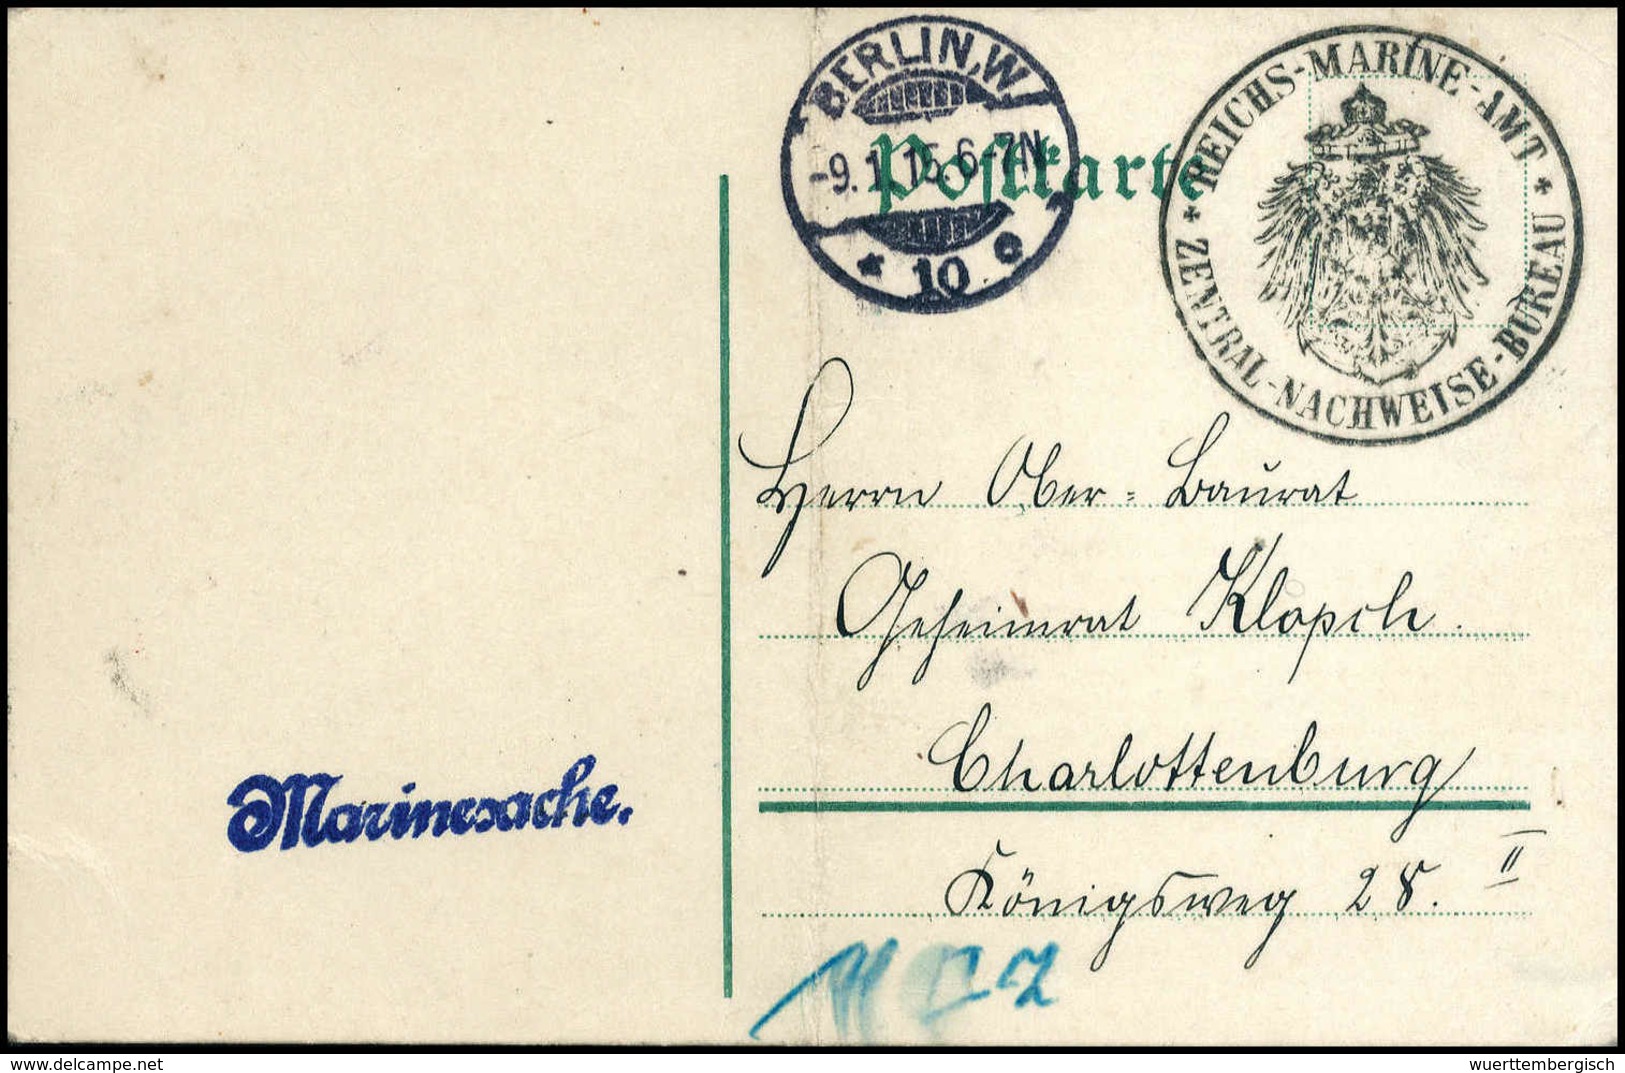 BERLIN, W.
-9.1.15.6-7N.
* 10 e
Postkarte
* REICHS-MARINE-AMT *
ZENTRAL-NACHWEISE-BUREAU
Herrn Ober-Baurat
Geheimrat Klopsch.
Charlottenburg
Königsweg 28. II
Marinesache.
Delcampe.net
wuerttembergisch